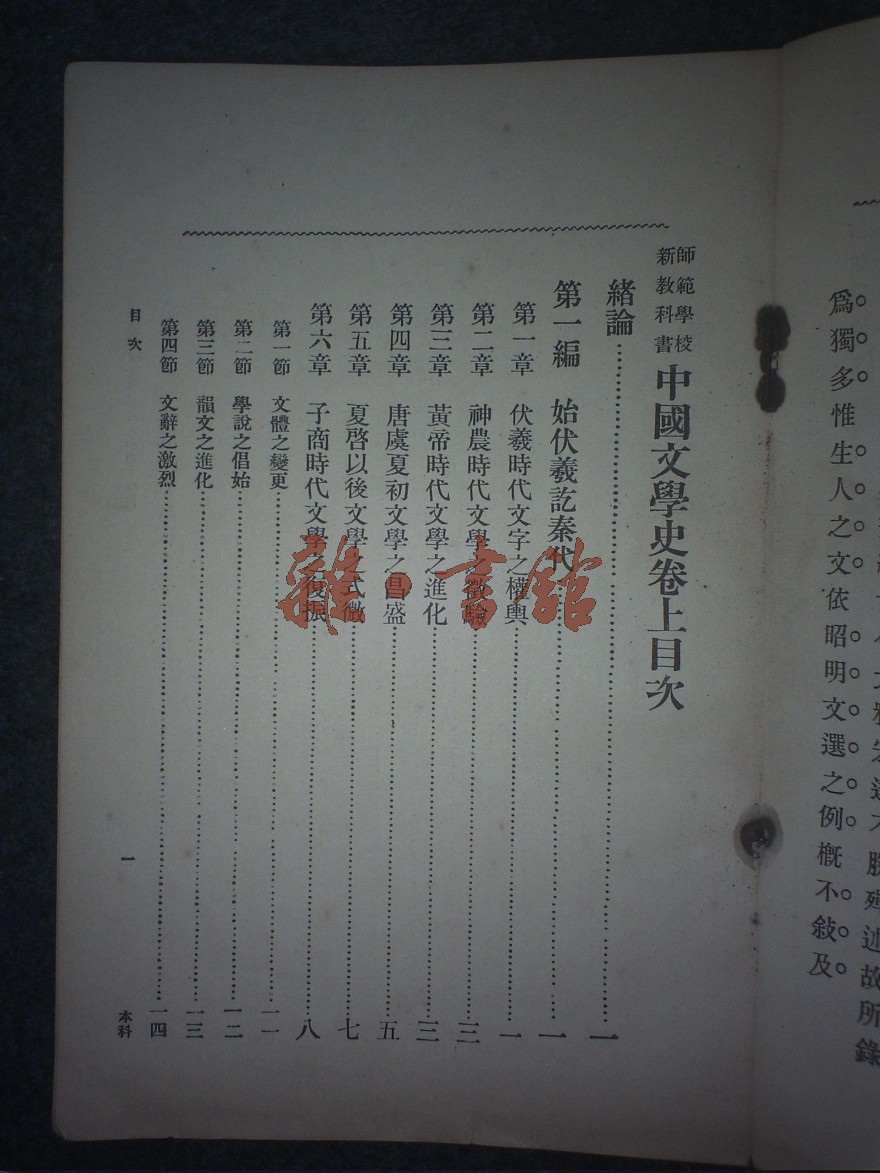 勝殫述故所錄
爲獨多惟生人之文依昭明文選之例概不敍及
師範學校
新教科書
中國文學史卷上目次
緒論……一
第一編 始伏羲訖秦代……一
第一章 伏羲時代文字之權輿……一
第二章 神農時代文學之徵驗……三
第三章 黃帝時代文學之進化……三
第四章 唐虞夏初文學之昌盛……五
第五章 夏啓以後文學之式微……七
第六章 子商時代文學之復振……八
第一節 文體之變更……一一
第二節 學說之倡始……一二
第三節 韻文之進化……一三
第四節 文辭之激烈……一四
目次 一 本科
雜·書館